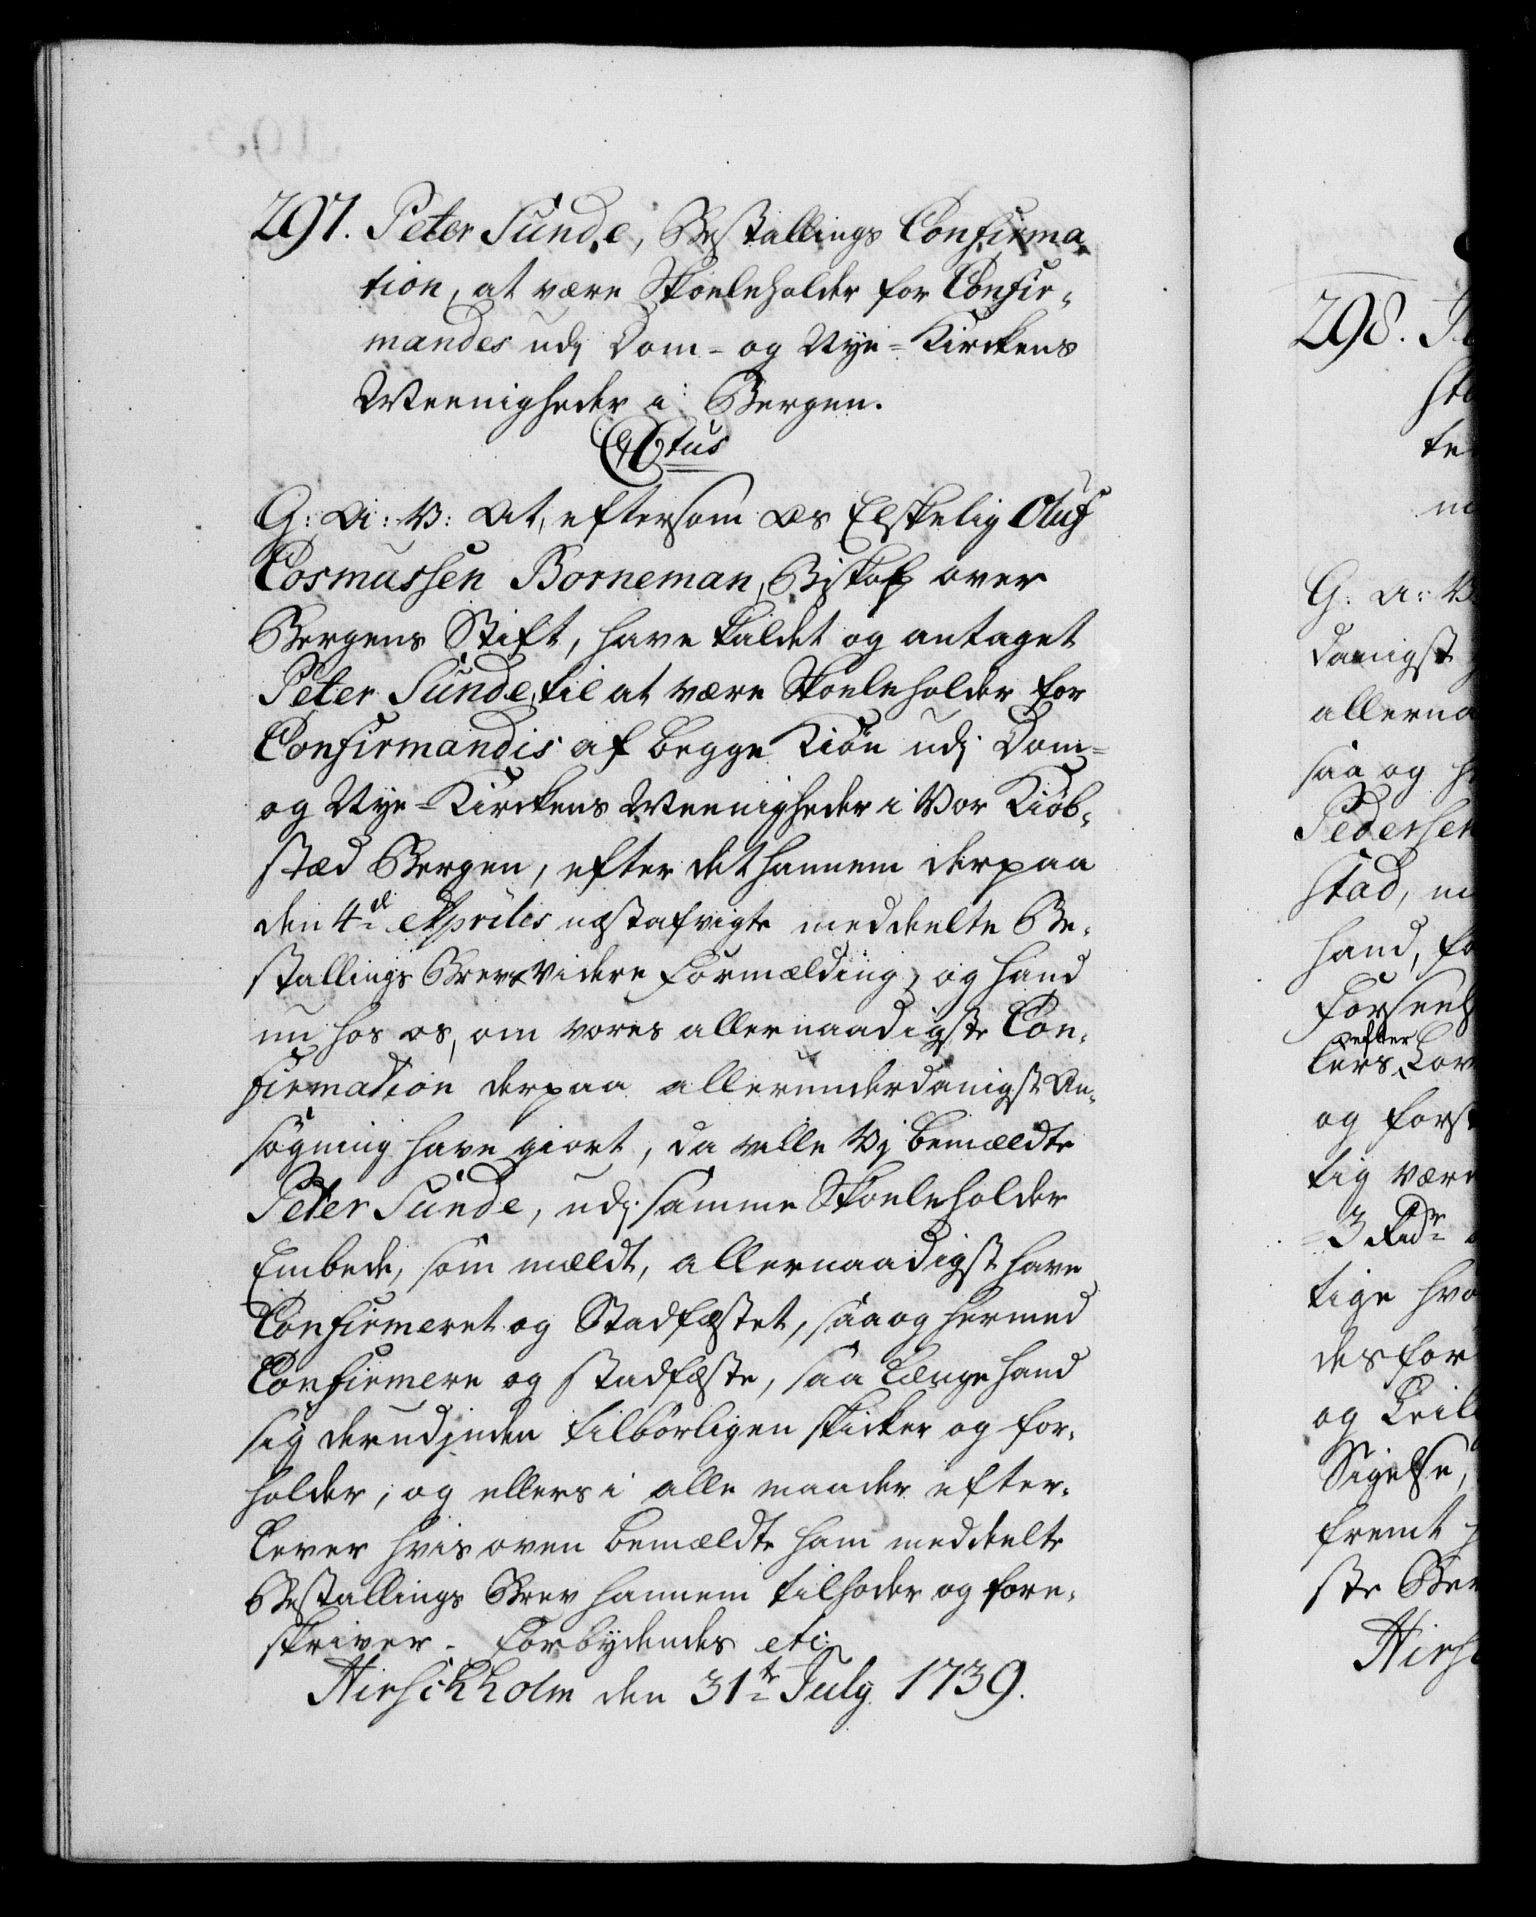 297. Peter Sunde, Bestallings Confirma-
tion, at være Skoeleholder for Confir-
mandes udj Dom- og Nye-Kirckens
Meenigheder i Bergen.
Ctus
G: A: V: At, eftersom Os Elskelig Oluf
Cosmussen Borneman, Biskop over
Bergens Stift, have kaldet og antaget
Peter Sunde, til at være Skoeleholder for
Confirmandis af begge Kiön udj Dom-
og Nye-Kirckens Meenigheder i Vor Kiöb-
stæd Bergen, efter det hannem derpaa
den 4de Aprilis næstafvigte meddeelte Be-
stallings Brevs videre Formælding, og hand
nu hos os, om vores allernaadigste Con-
firmation derpaa allerunderdanigst An-
søgning have giort, da ville Vj bemældte
Peter Sunde, udj samme Skoeleholder
Embede, som mældt, allernaadigst have
Confirmeret og Stadfæstet, saa og hermed
Confirmere og stadfæste, saa længe hand
sig derudjnden tilbörligen skicker og for-
holder, og ellers i alle maader efter-
lever hvis oven bemældte ham meddeelte
Bestallings Brev hannem tilholder og fore-
skriver. Forbydendes etc:
Hirschholm den 31te July 1739.
298.
G: A: V:
danigst
allerna
saa og
Pedersen
stad,
hand, fo
Forseel
efter
lers, Lov
og forst
tig være
3 Rdr
tige hvo
desfor
og
Sigelse,
fremt
ste Be
Hirsc